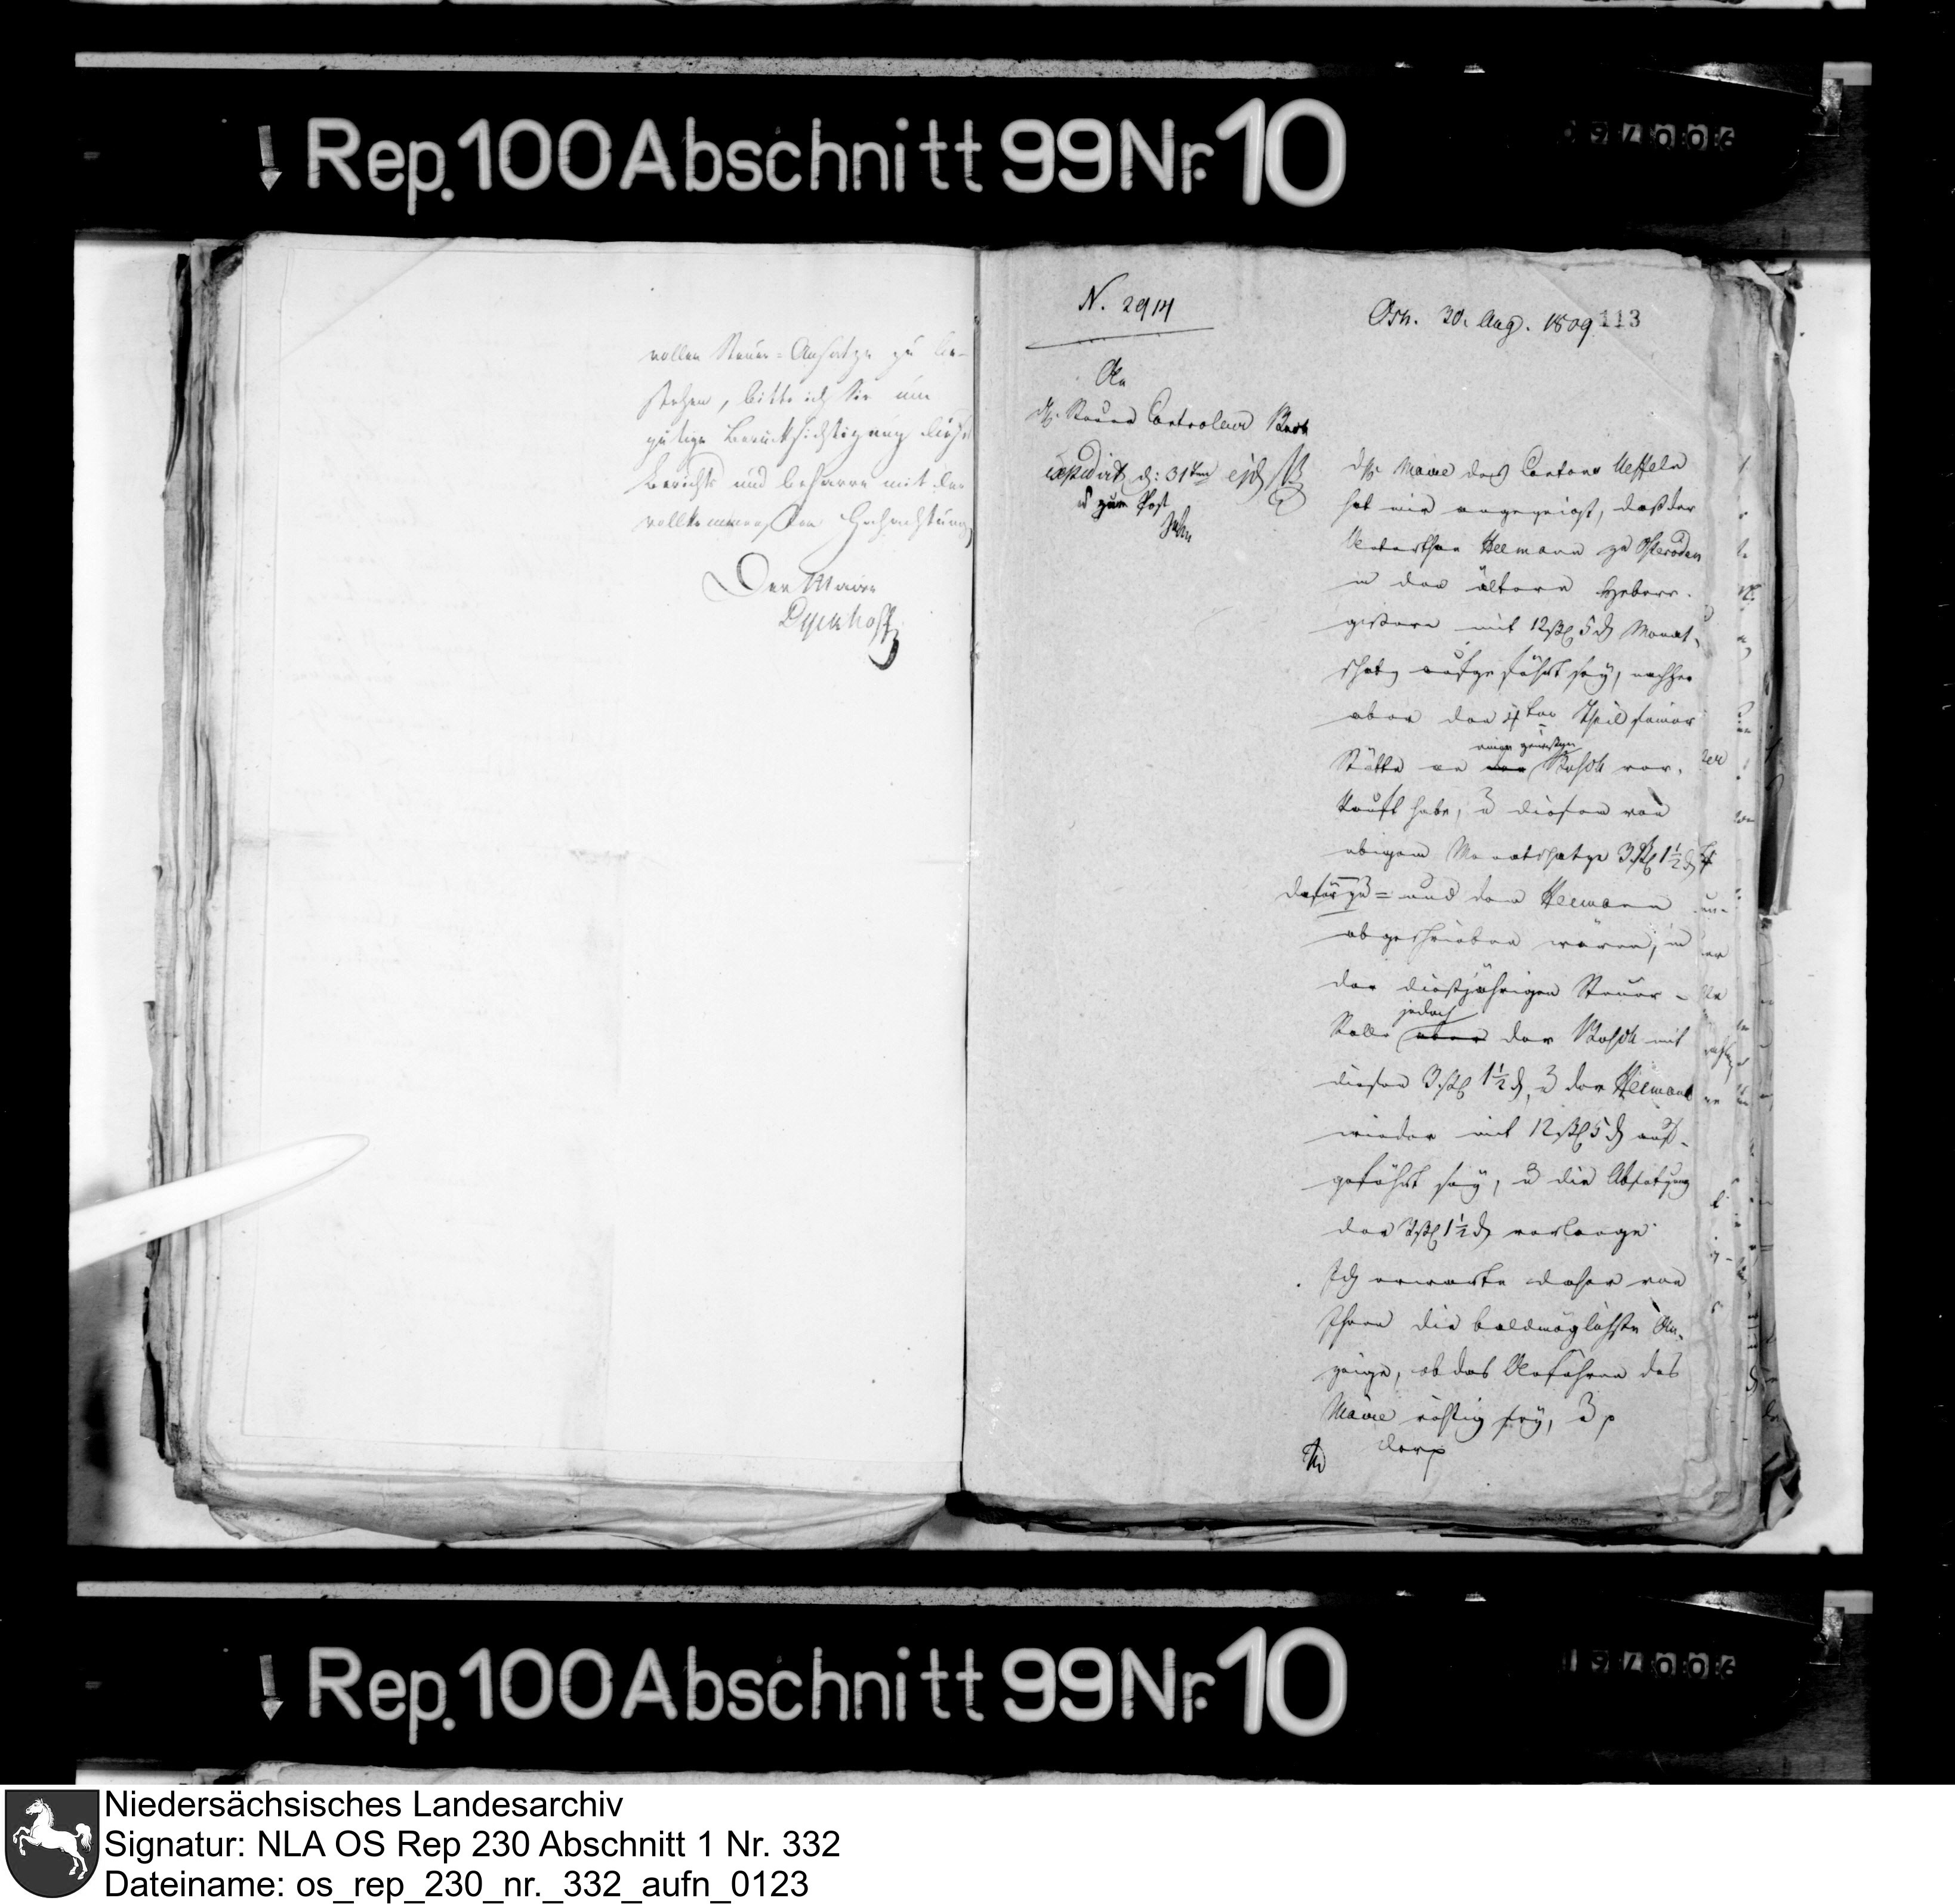 Rep. 100 Abschnitt 99 Nr. 10
vollen Steuer-Ansatze zu be-
stehen, bitte ich Sie um
gütige Berücksichtigung dieses
Berichts und beharre mit der
vollkommensten Hochachtung
Der Maire
Dyckhoff
N. 2914
Osn. 30. Aug. 1809
113
An
H. Steuer Controleur
expedirt d: 31ten ejd
zur Post
Der Maire des Cantons Ueffeln
hat mir angezeigt, daß der
Unterthan Heemann zu
in den ältern Heberre-
gistern mit 12 ß 5 d Monat-
schatz aufgeführt sey, nachher
aber den 4ten Theil seiner
einen gewissen
Stätte an den ver-
kauft habe, u diesem von
obigem Monatschatze 3 ß 1½ d
und dem Heemann
abgeschrieben wären, in
der dießjährigen Steuer-
jedoch
Rolle aber der mit
diesen 3 ß 1½ d, u der Heemann
wieder mit 12 ß 5 d auf-
geführt sey, u die Absetzung
der 3 ß 1½ d verlange.
Ich erwarte daher von
Ihnen die baldmöglichste An-
zeige, ob das Anführen des
Maire richtig sey, u
Rep. 100 Abschnitt 99 Nr. 10
Niedersächsisches Landesarchiv
Signatur: NLA OS Rep 230 Abschnitt 1 Nr. 332
Dateiname: os_rep_230_nr._332_aufn_0123